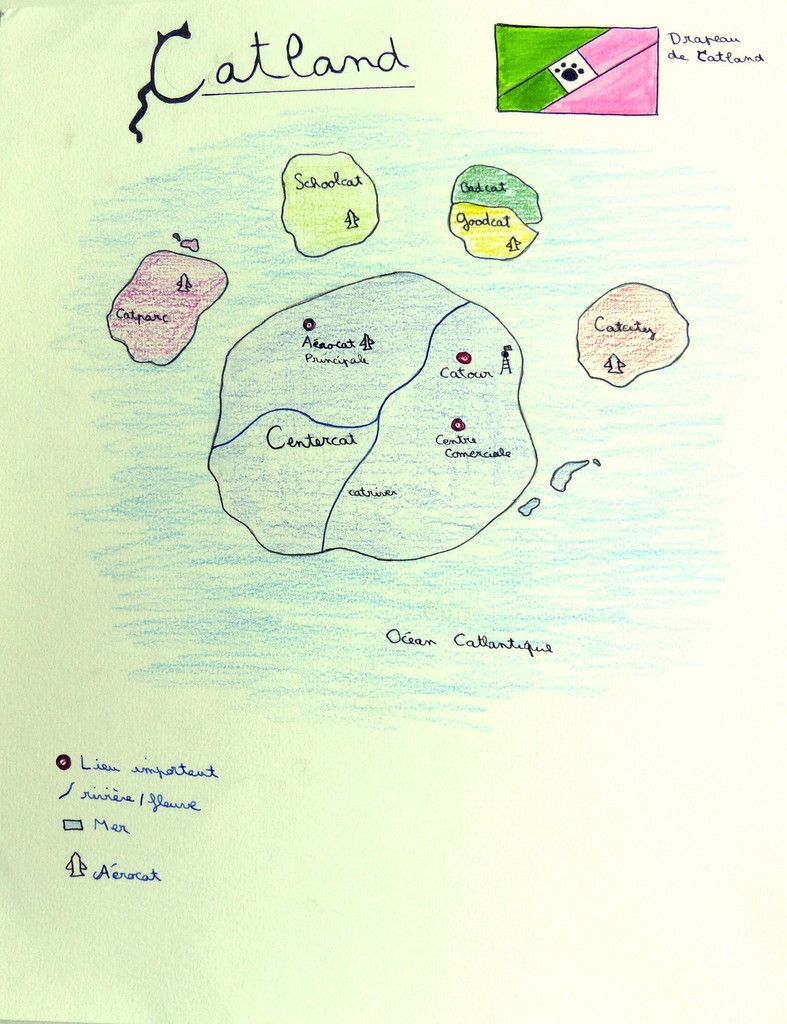 Catland
Drapeau
de Catland
Schoolcat
Badcat
Goodcat
Catparc
Aérocat
Principale
Catcity
Catour
Centercat
Centre
Comerciale
catriver
Océan Catlantique
Lieu important
rivière / fleuve
Mer
Aérocat